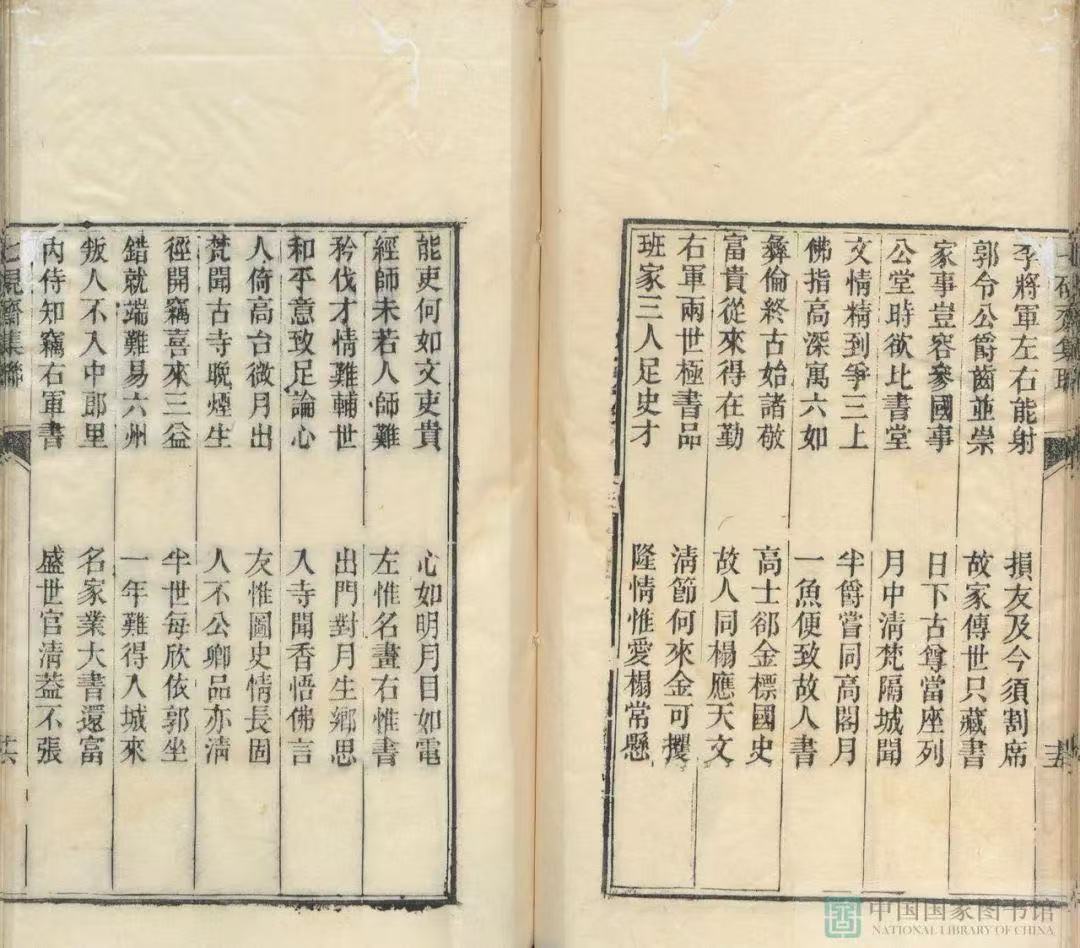 李將軍左右能射
損友及今須割席
郭令公爵齒並崇
故家傳世只藏書
家事豈容參國事
日下古尊當座列
公堂時欲比書堂
月中清梵隔城聞
文情精到爭三上
半爵嘗同高閣月
佛指高深寓六如
一魚便致故人書
彝倫終古始諸敬
高士郤金標國史
富貴從來得在勤
故人同榻應天文
右軍兩世極書品
清節何來金可攫
班家三人足史才
隆情惟愛榻常懸
能吏何如文吏貴
心如明月目如電
經師未若人師難
左惟名畫右惟書
矜伐才情難輔世
出門對月生鄉思
和平意致足論心
入寺聞香悟佛言
人倚高台微月出
友惟圖史情長固
梵聞古寺晚煙生
人不公卿品亦清
徑開竊喜來三益
半世每欣依郭坐
錯就端難易六州
一年難得入城來
叛人不入中郎里
名家業大書還富
內侍知竊右軍書
盛世官清蓋不張
七硯齋集聯
中国国家图书馆
NATIONAL LIBRARY OF CHINA